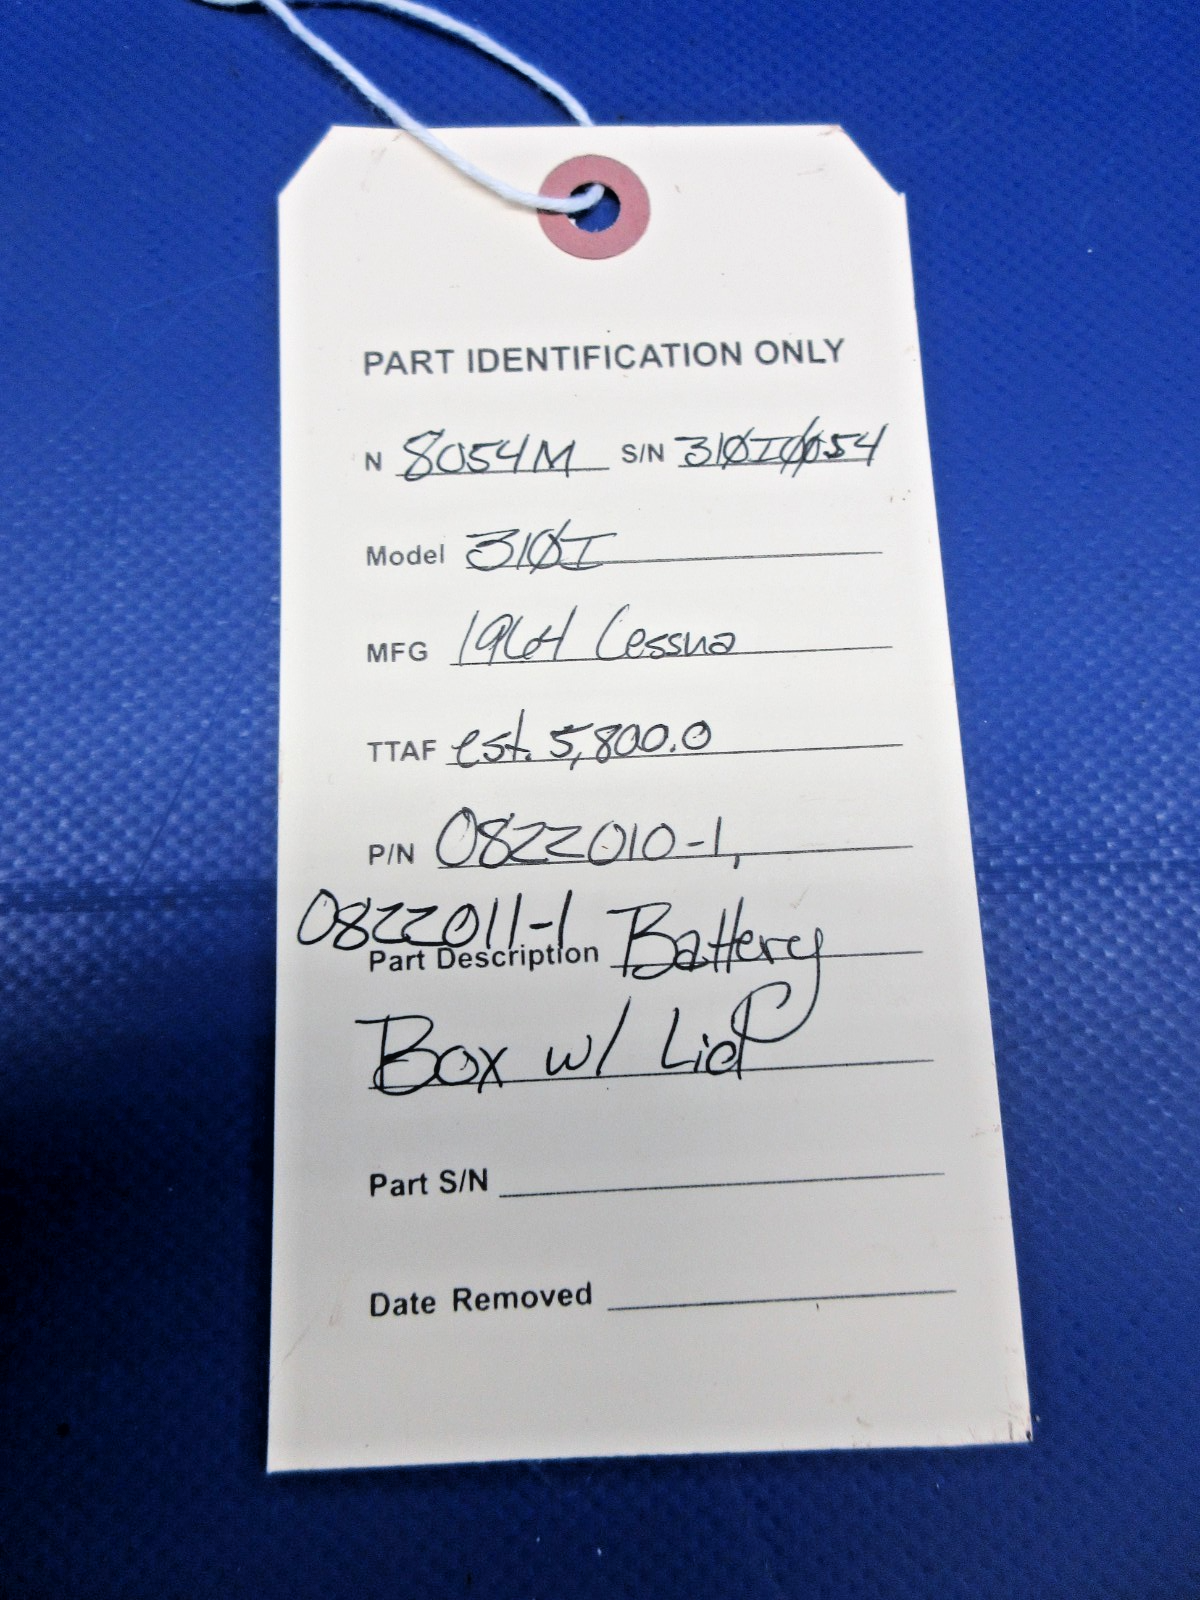 PART IDENTIFICATION ONLY
N 8054M S/N 310I0054
Model 310I
MFG 1964 Cessna
TTAF est. 5,800.0
P/N 0822010-1,
0822011-1
Part Description Battery
Box w/ Lid
Part S/N
Date Removed